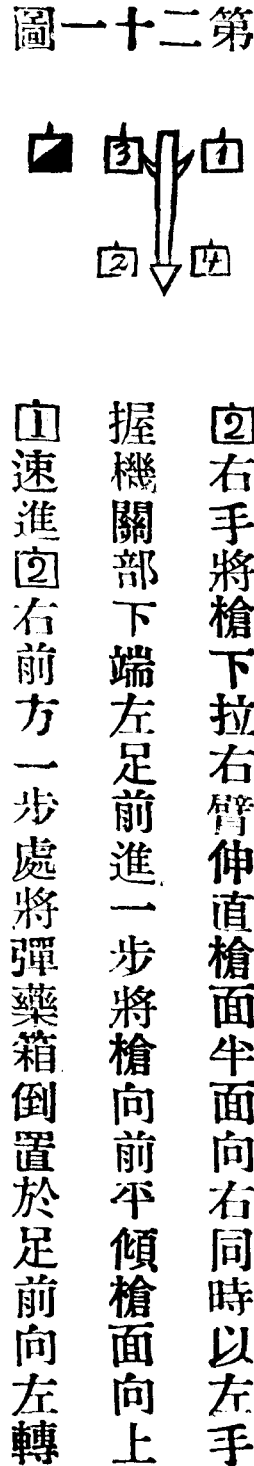 第二十一圖
3 1
2 4
2右手將槍下拉右臂伸直槍面半面向右同時以左手
握機關部下端左足前進一步將槍向前平傾槍面向上
1速進2右前方一步處將彈藥箱倒置於足前向左轉